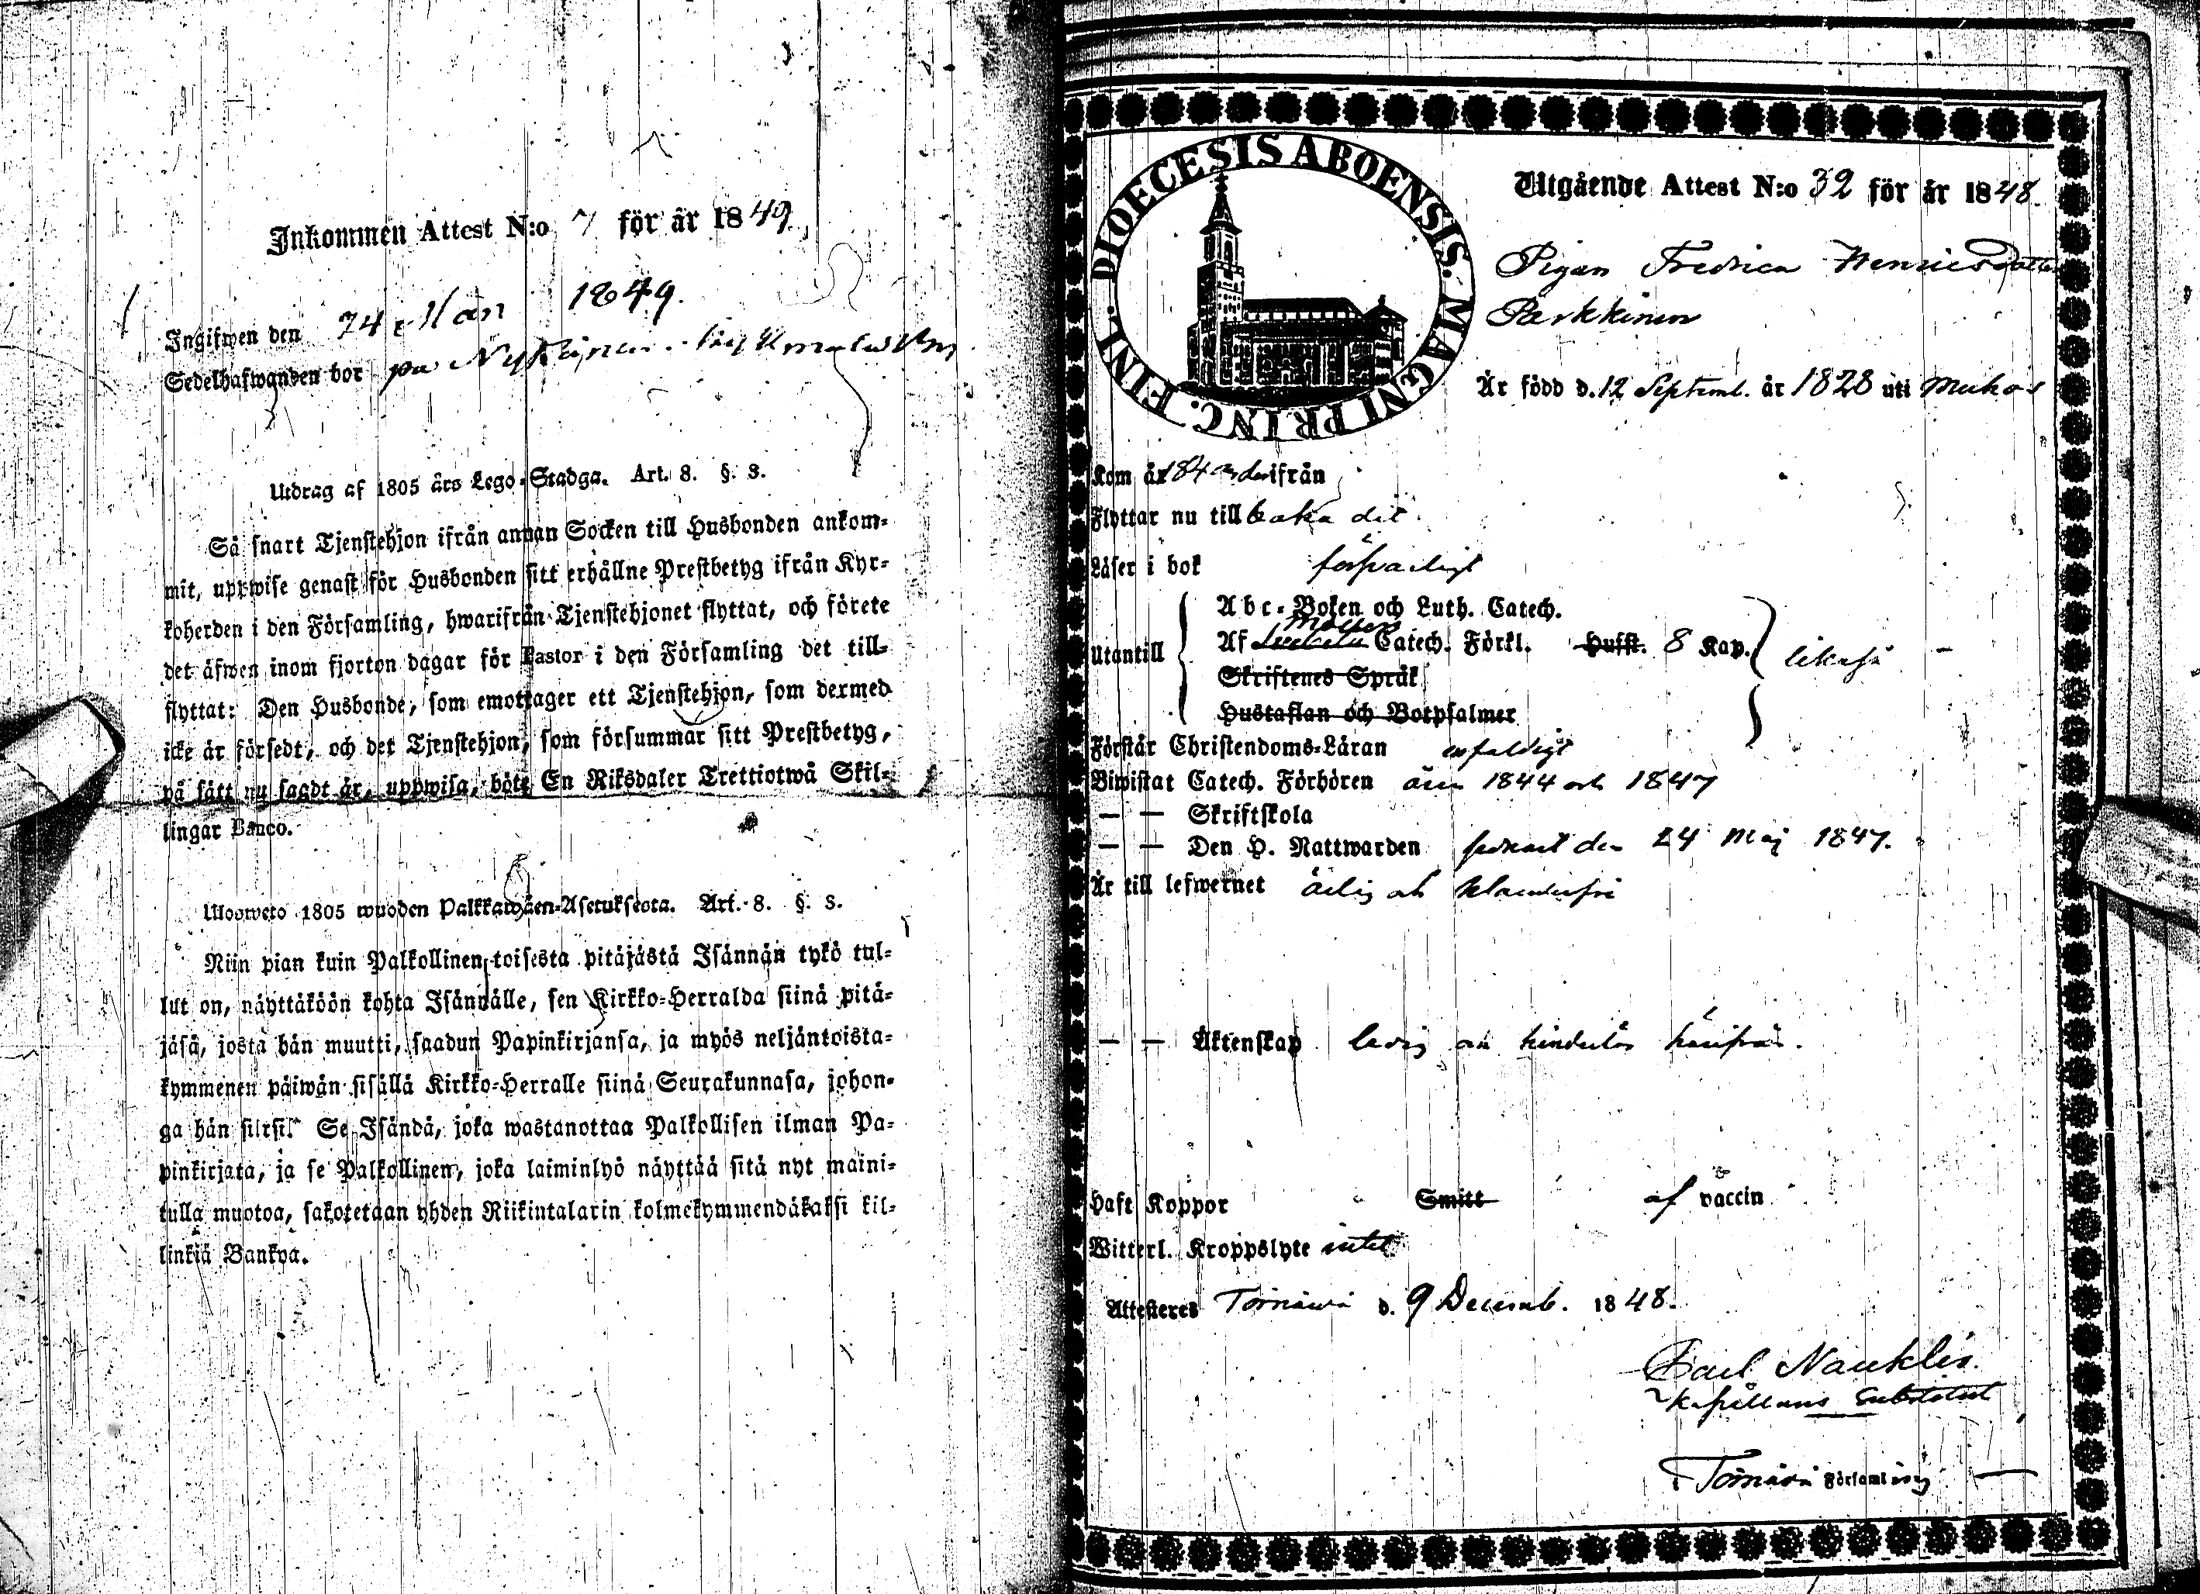 Inkommen Attest N:o 7 för år 1849.
Ingifwen den 1849.
Sedelhafwanden bor på
Utdrag af 1805 års Lego-Stadga. Art. 8. §. 3.
Så snart Tjenstehjon ifrån annan Socken till Husbonden ankom-
mit, uppwise genast för Husbonden sitt erhållne Prestbetyg ifrån Kyr-
koherden i den Församling, hwarifrån Tjenstehjonet flyttat, och förete
det äfwen inom fjorton dagar för Pastor i den Församling det till-
flyttat: Den Husbonde, som emottager ett Tjenstehjon, som dermed
icke är försedt, och det Tjenstehjon, som försummar sitt Prestbetyg,
på sätt nu sagdt är, uppwisa, böte En Riksdaler Trettiotwå Skil-
lingar Banco.
Ulosweto 1805 wuoden Palkkawäen-Asetuksesta. Art. 8. §. 3.
Niin pian kuin Palkollinen toisesta pitäjästä Isännän tykö tul-
lut on, näyttäköön kohta Isännälle, sen Kirkko-Herralda siinä pitä-
jäsä, josta hän muutti, saadun Papinkirjansa, ja myös neljäntoista-
kymmenen päiwän sisällä Kirkko-Herralle siinä Seurakunnasa, johon-
ga hän siirsi. Se Isändä, joka wastanottaa Palkollisen ilman Pa-
pinkirjata, ja se Palkollinen, joka laiminlyö näyttää sitä nyt maini-
tulla muotoa, sakotetaan yhden Riikintalarin kolmekymmendäkaksi kil-
linkiä Bankoa.
DIOECESIS ABOENSIS. MAGNI PRINC. FINL.
Utgående Attest N:o 32 för år 1848.
Pigan Fredrica Henricsdotter
Parkkinen
Är född d. 12 Septemb. år 1828 uti Muhos
Kom år 184 derifrån
Flyttar nu tillbaka dit.
Läser i bok försvarligt
Utantill
Abc-Boken och Luth. Catech.
Af Möllers Catech. Förkl. Hufst. 8 Kap. likaså
Skriftenes Språk
Hustaflan och Botpsalmer
Förstår Christendoms-Läran enfaldigt
Biwistat Catech. Förhören åren 1844 och 1847
— — Skriftskola
— — Den H. Nattwarden senast den 24 Maj 1847.
Är till lefwernet ärlig och klanderfri
— — Äktenskap ledig och hinderlös härifrån.
Haft Koppor Smitt af vaccin
Witterl. Kroppslyte intet.
Attesteras Törnävä d. 9 Decemb. 1848.
Carl Nauklér.
Kapellans Substitut
Törnävä Församling